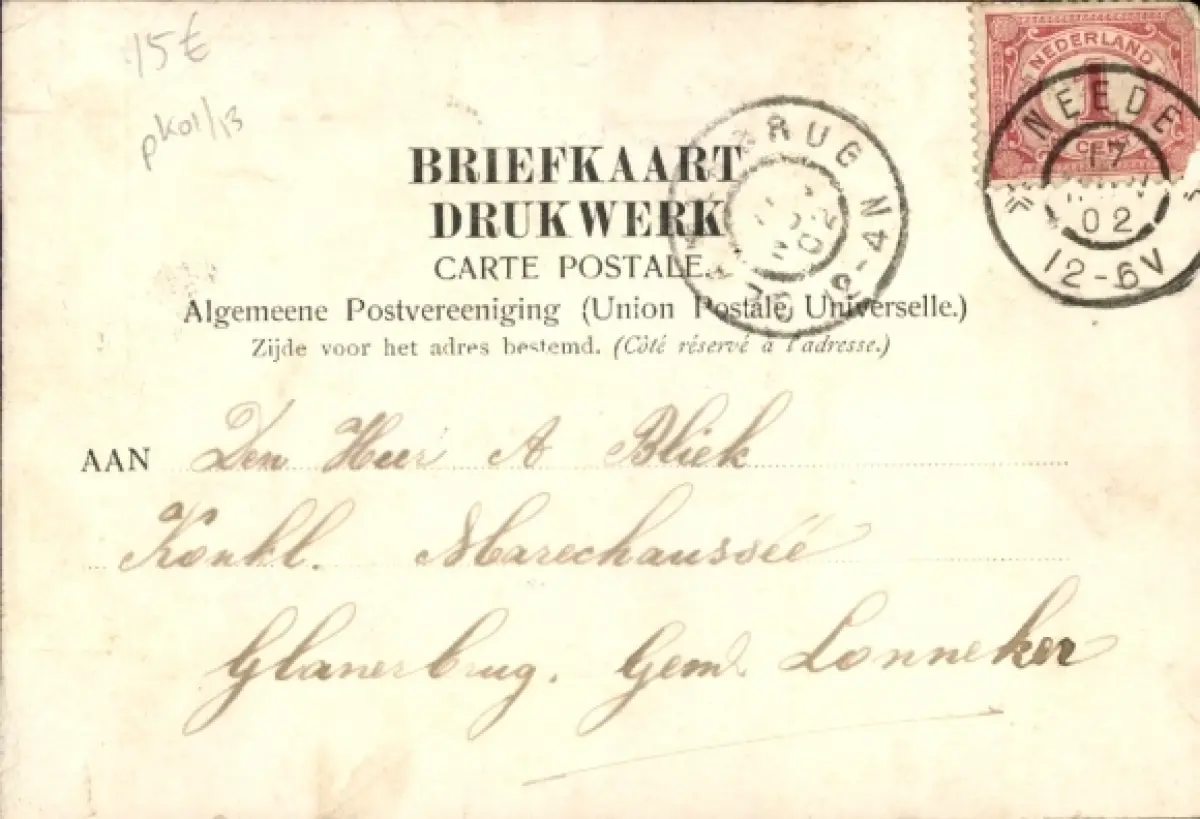 15€
pk01/13
NEDERLAND
1
CENT
NEEDE
17
02
12-6V
BRUG
12-4N
02
BRIEFKAART
DRUKWERK
CARTE POSTALE.
Algemeene Postvereeniging (Union Postale Universelle.)
Zijde voor het adres bestemd. (Côté réservé à l'adresse.)
AAN Den Heer A Bliek
Konkl. Marechausseé
Glanerbrug. Gem. Lonneker